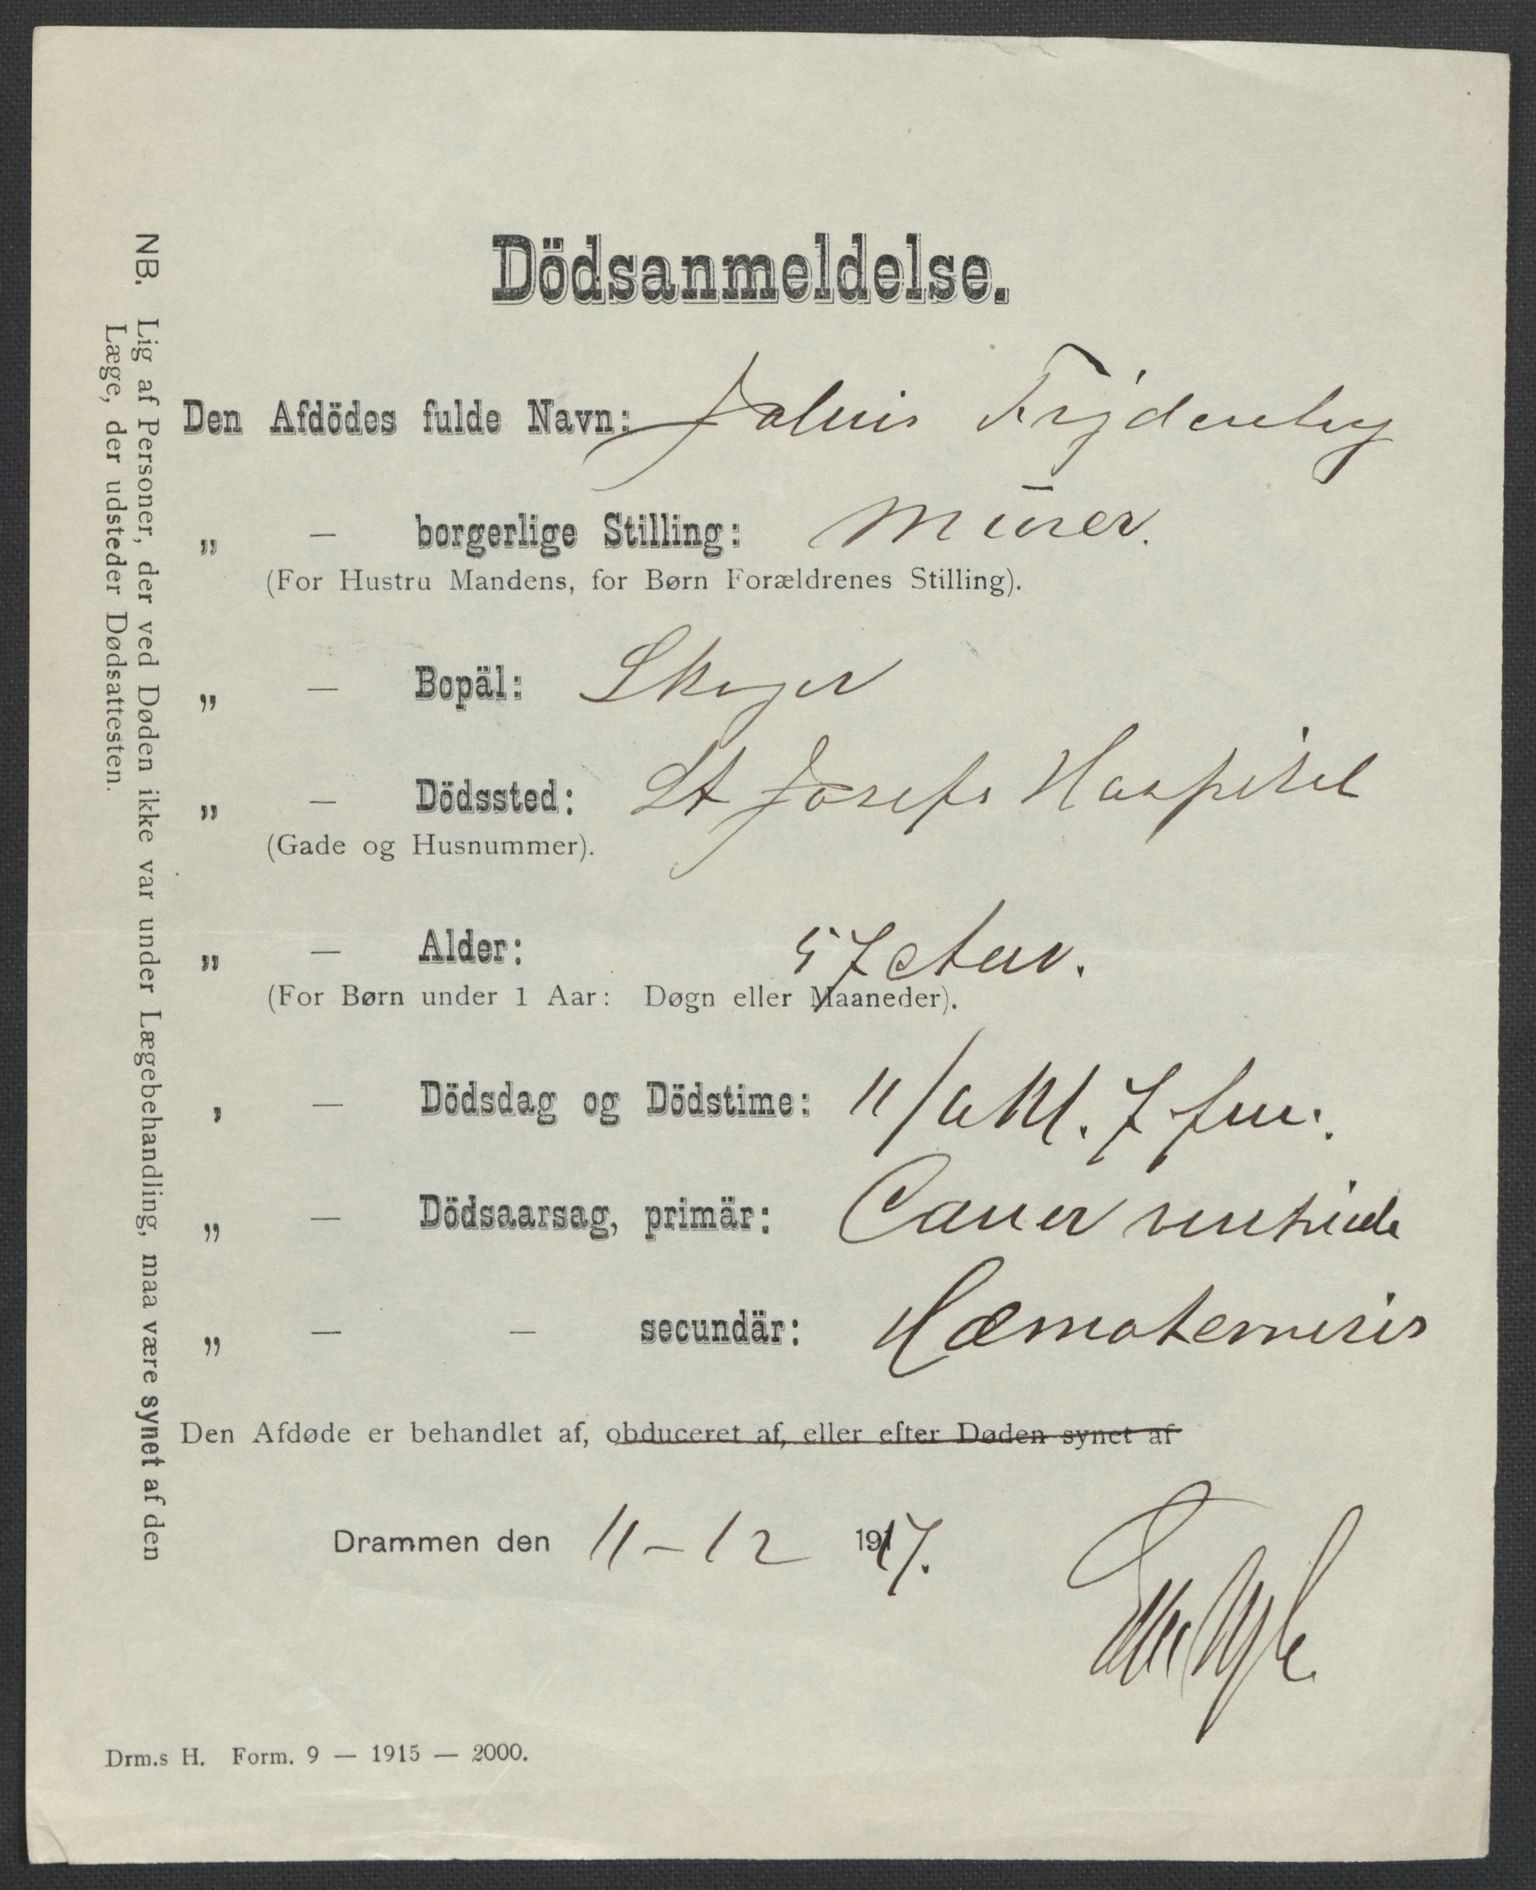 Dödsanmeldelse.
Den Afdödes fulde Navn: Frydenley
„ — borgerlige Stilling: Mūrer.
(For Hustru Mandens, for Børn Forældrenes Stilling).
„ — Bopäl: Skoger
„ — Dödssted: St Josefs Hospital
(Gade og Husnummer).
„ — Alder: 57 Aar.
(For Børn under 1 Aar: Døgn eller Maaneder).
, — Dödsdag og Dödstime: Kl. 7 fm.
„ — Dödsaarsag, primär: Cancer ventriculi
„ — — secundär: Hæmatemesis
Den Afdøde er behandlet af, obduceret af, eller efter Døden synet af
Drammen den 11-12 1917.
Drm.s H. Form. 9 — 1915 — 2000.
NB. Lig af Personer, der ved Døden ikke var under Lægebehandling, maa være synet af den
Læge, der udsteder Dødsattesten.